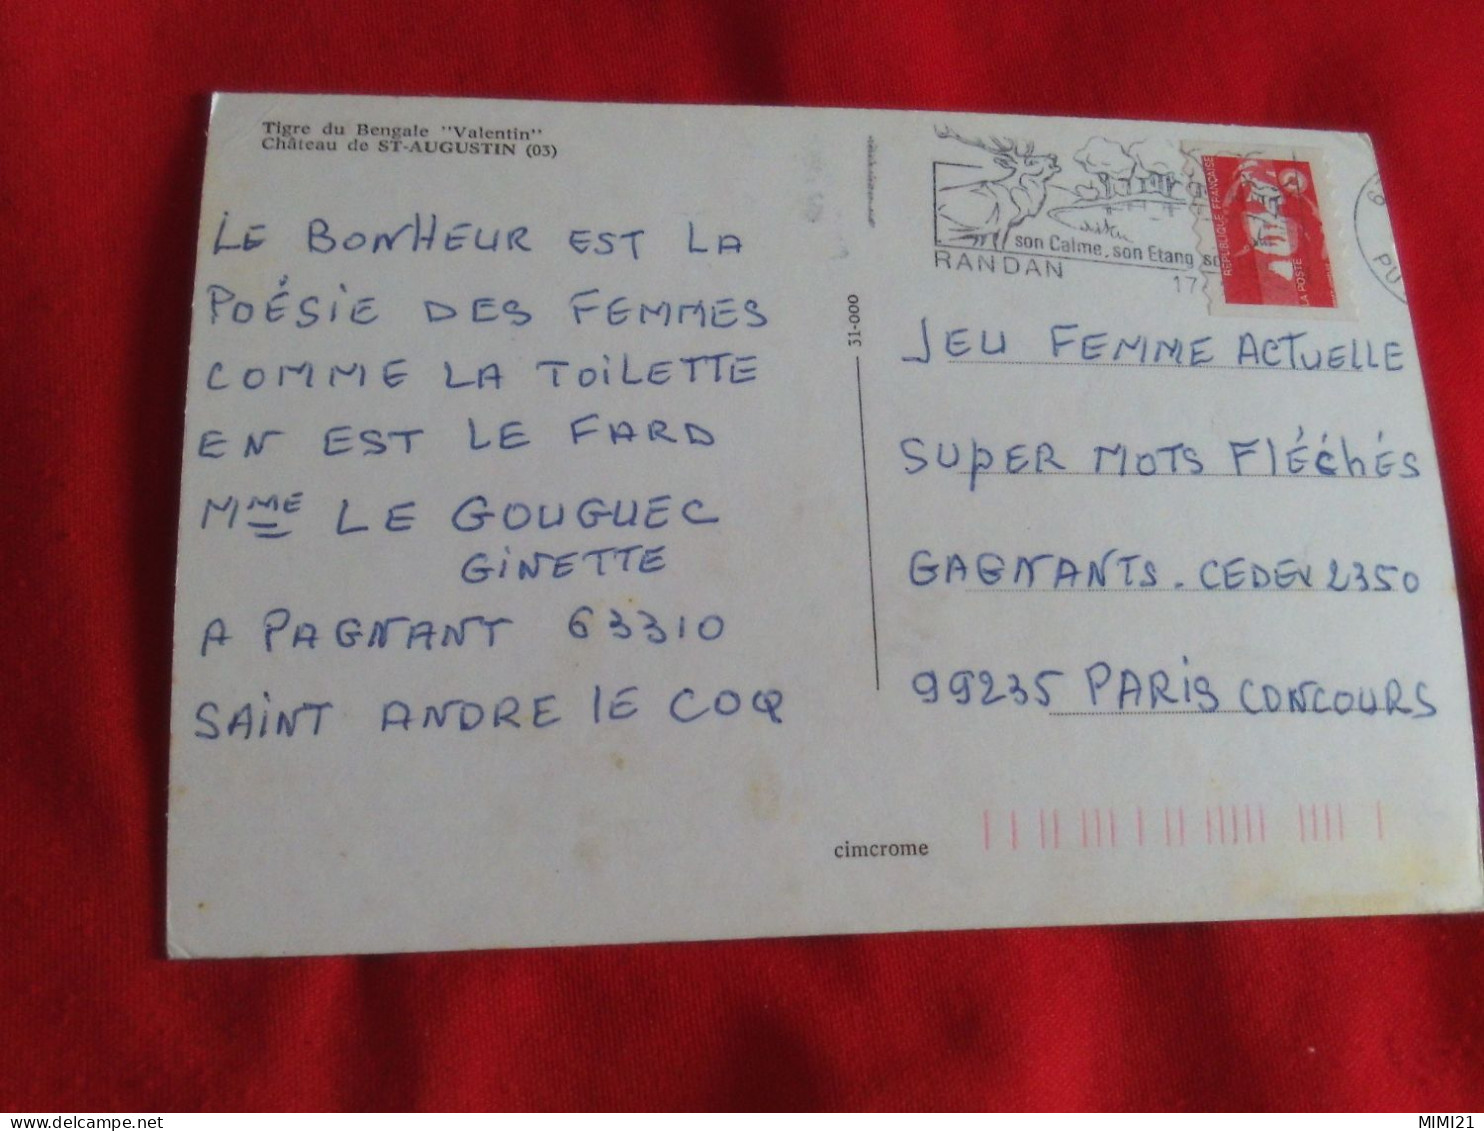 Tigre du Bengale "Valentin"
Château de ST-AUGUSTIN (03)
LE BONHEUR EST LA
POÉSIE DES FEMMES
COMME LA TOILETTE
EN EST LE FARD
MME LE GOUGUEC
GINETTE
A PAGNANT 63310
SAINT ANDRE LE COQ
31-000
cimcrome
son Calme, son Etang
RANDAN
17
REPUBLIQUE FRANÇAISE
LA POSTE
PU
JEU FEMME ACTUELLE
SUPER MOTS FLÉCHÉS
GAGNANTS. CEDEX 2350
99235 PARIS CONCOURS
MIMI21